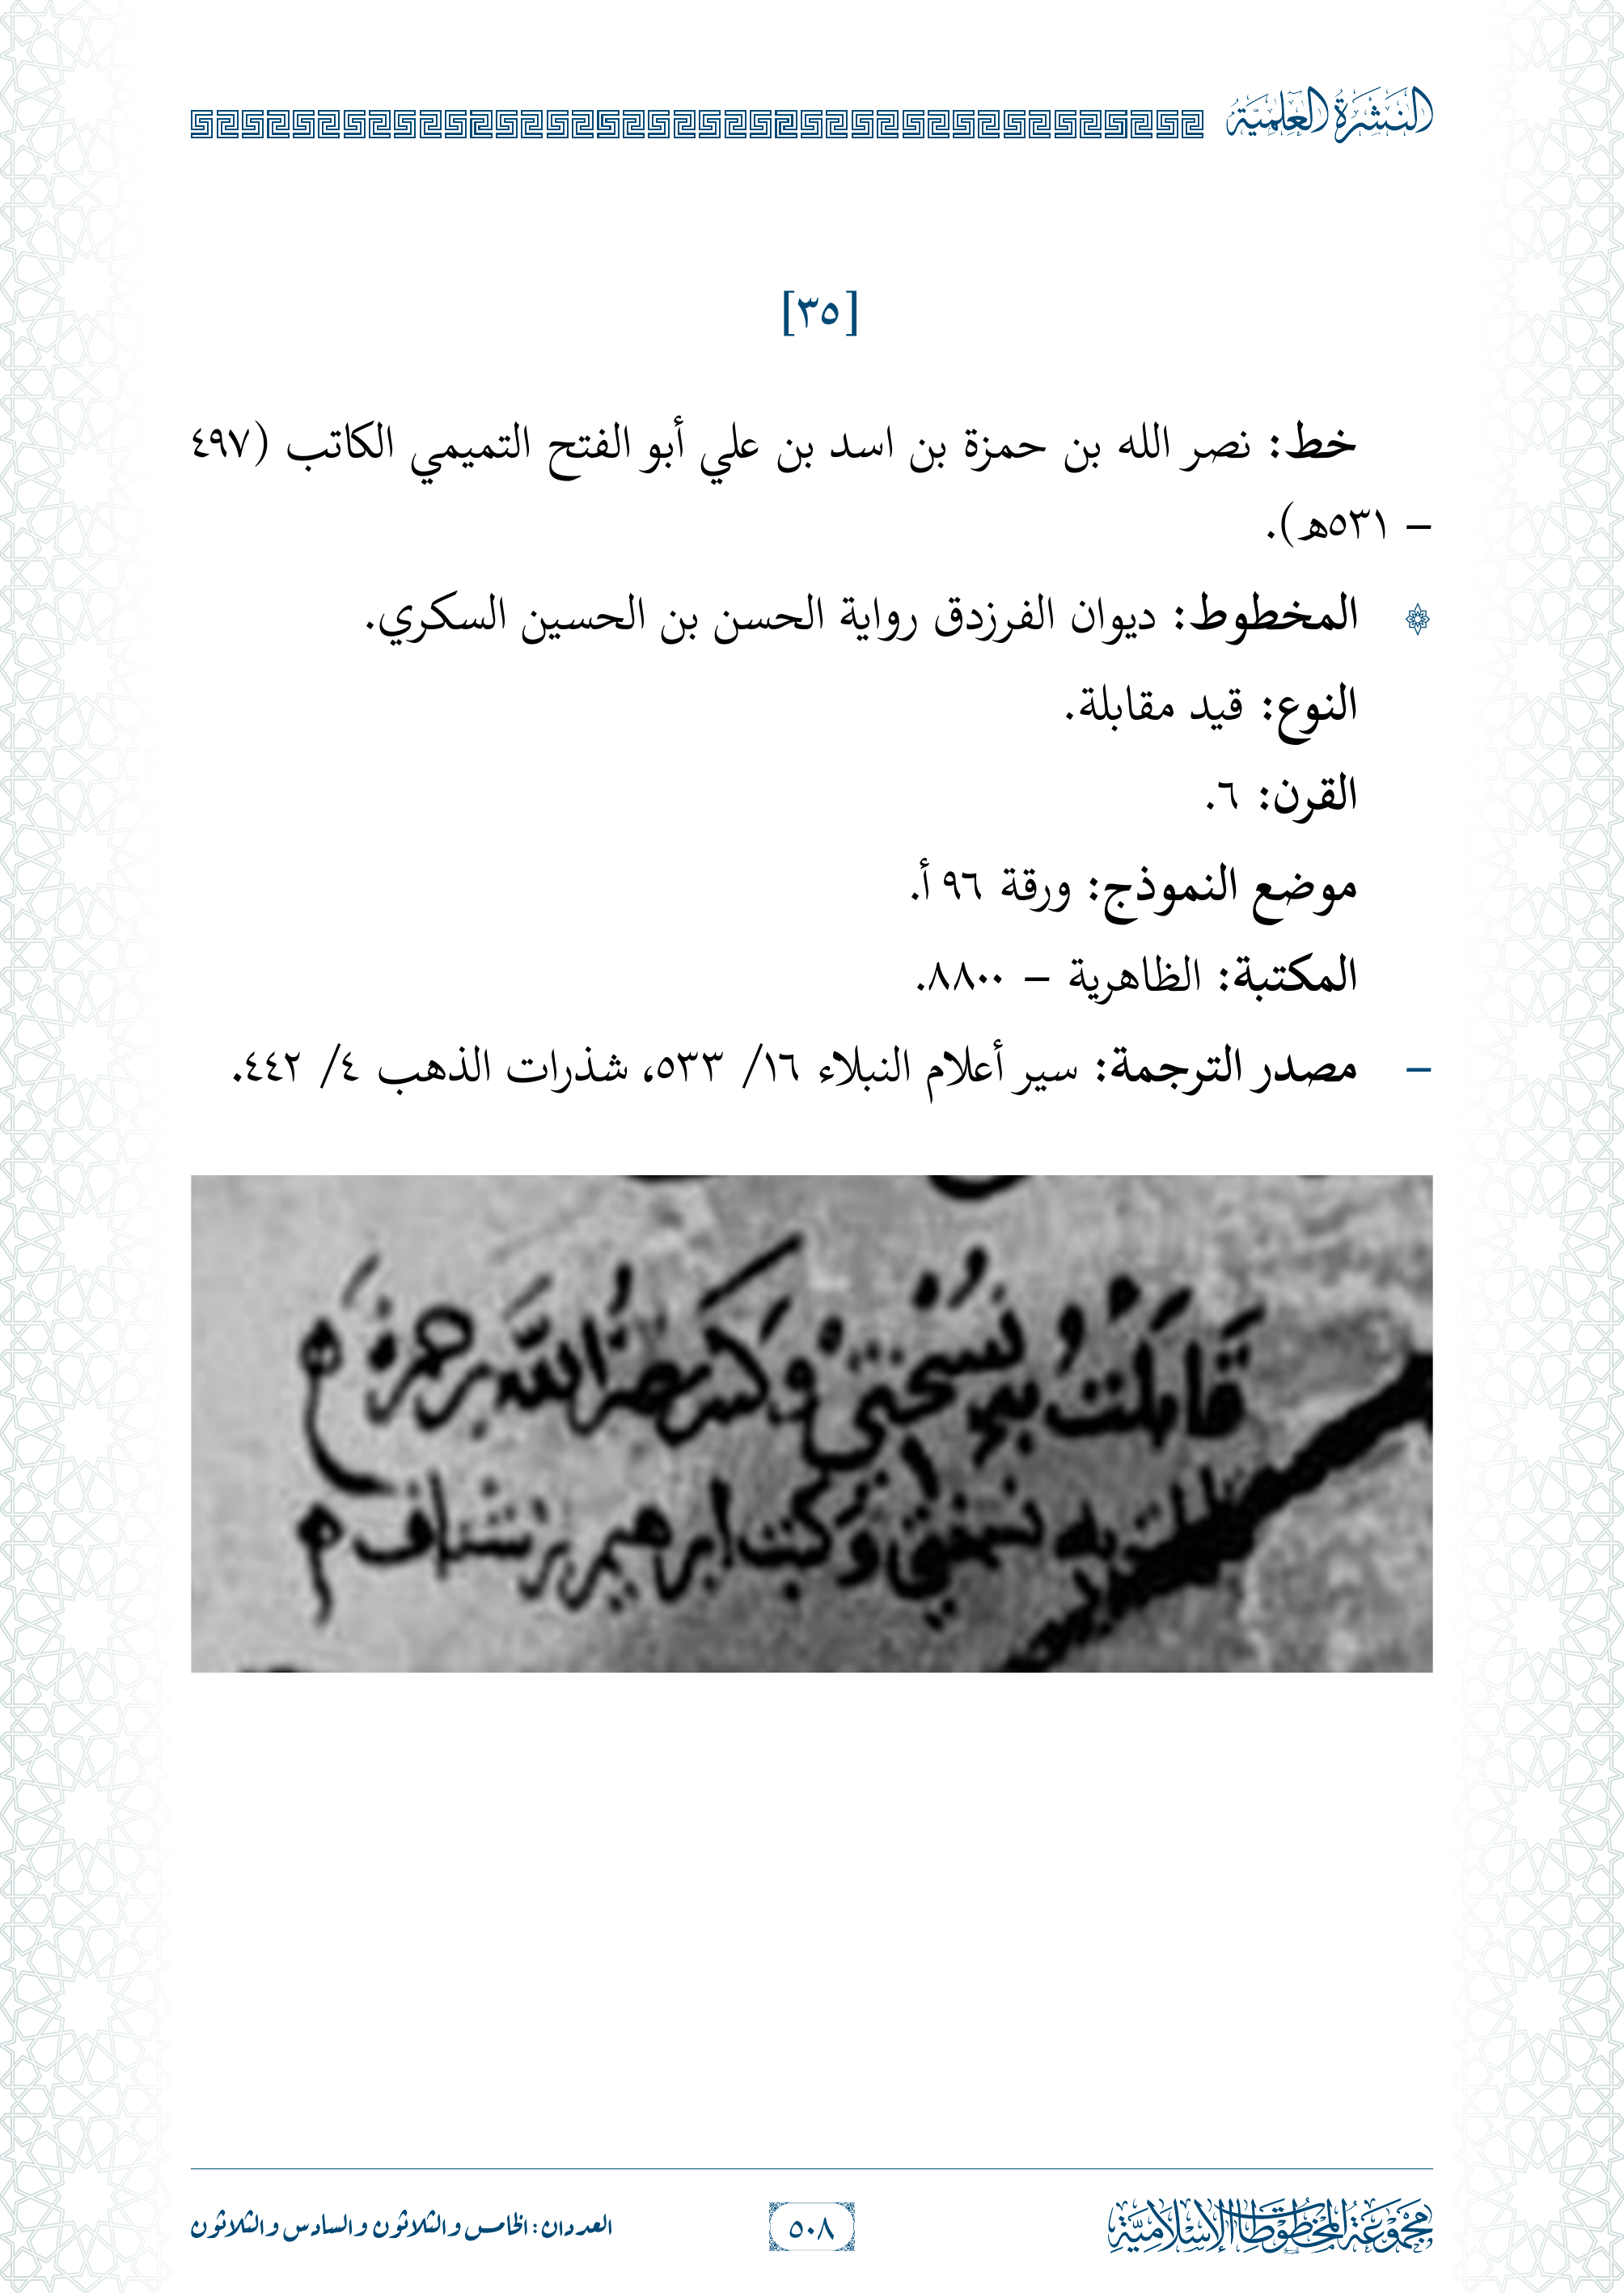 النشرة العلمية
[٣٥]
خط: نصر الله بن حمزة بن اسد بن علي أبو الفتح التميمي الكاتب (٤٩٧
– ٥٣١هـ).
المخطوط: ديوان الفرزدق رواية الحسن بن الحسين السكري.
النوع: قيد مقابلة.
القرن: ٦.
موضع النموذج: ورقة ٩٦ أ.
المكتبة: الظاهرية – ٨٨٠٠.
– مصدر الترجمة: سير أعلام النبلاء ١٦/ ٥٣٣، شذرات الذهب ٤/ ٤٤٢.
قَابَلتُ بهِ نُسْخَتي وَكَتبَ نصرُ اللّه بن حمزة
به نسختي وَكتبَ ابرهيم بن
مجموعة المخطوطات الإسلامية
٥٠٨
العددان: الخامس والثلاثون والسادس والثلاثون